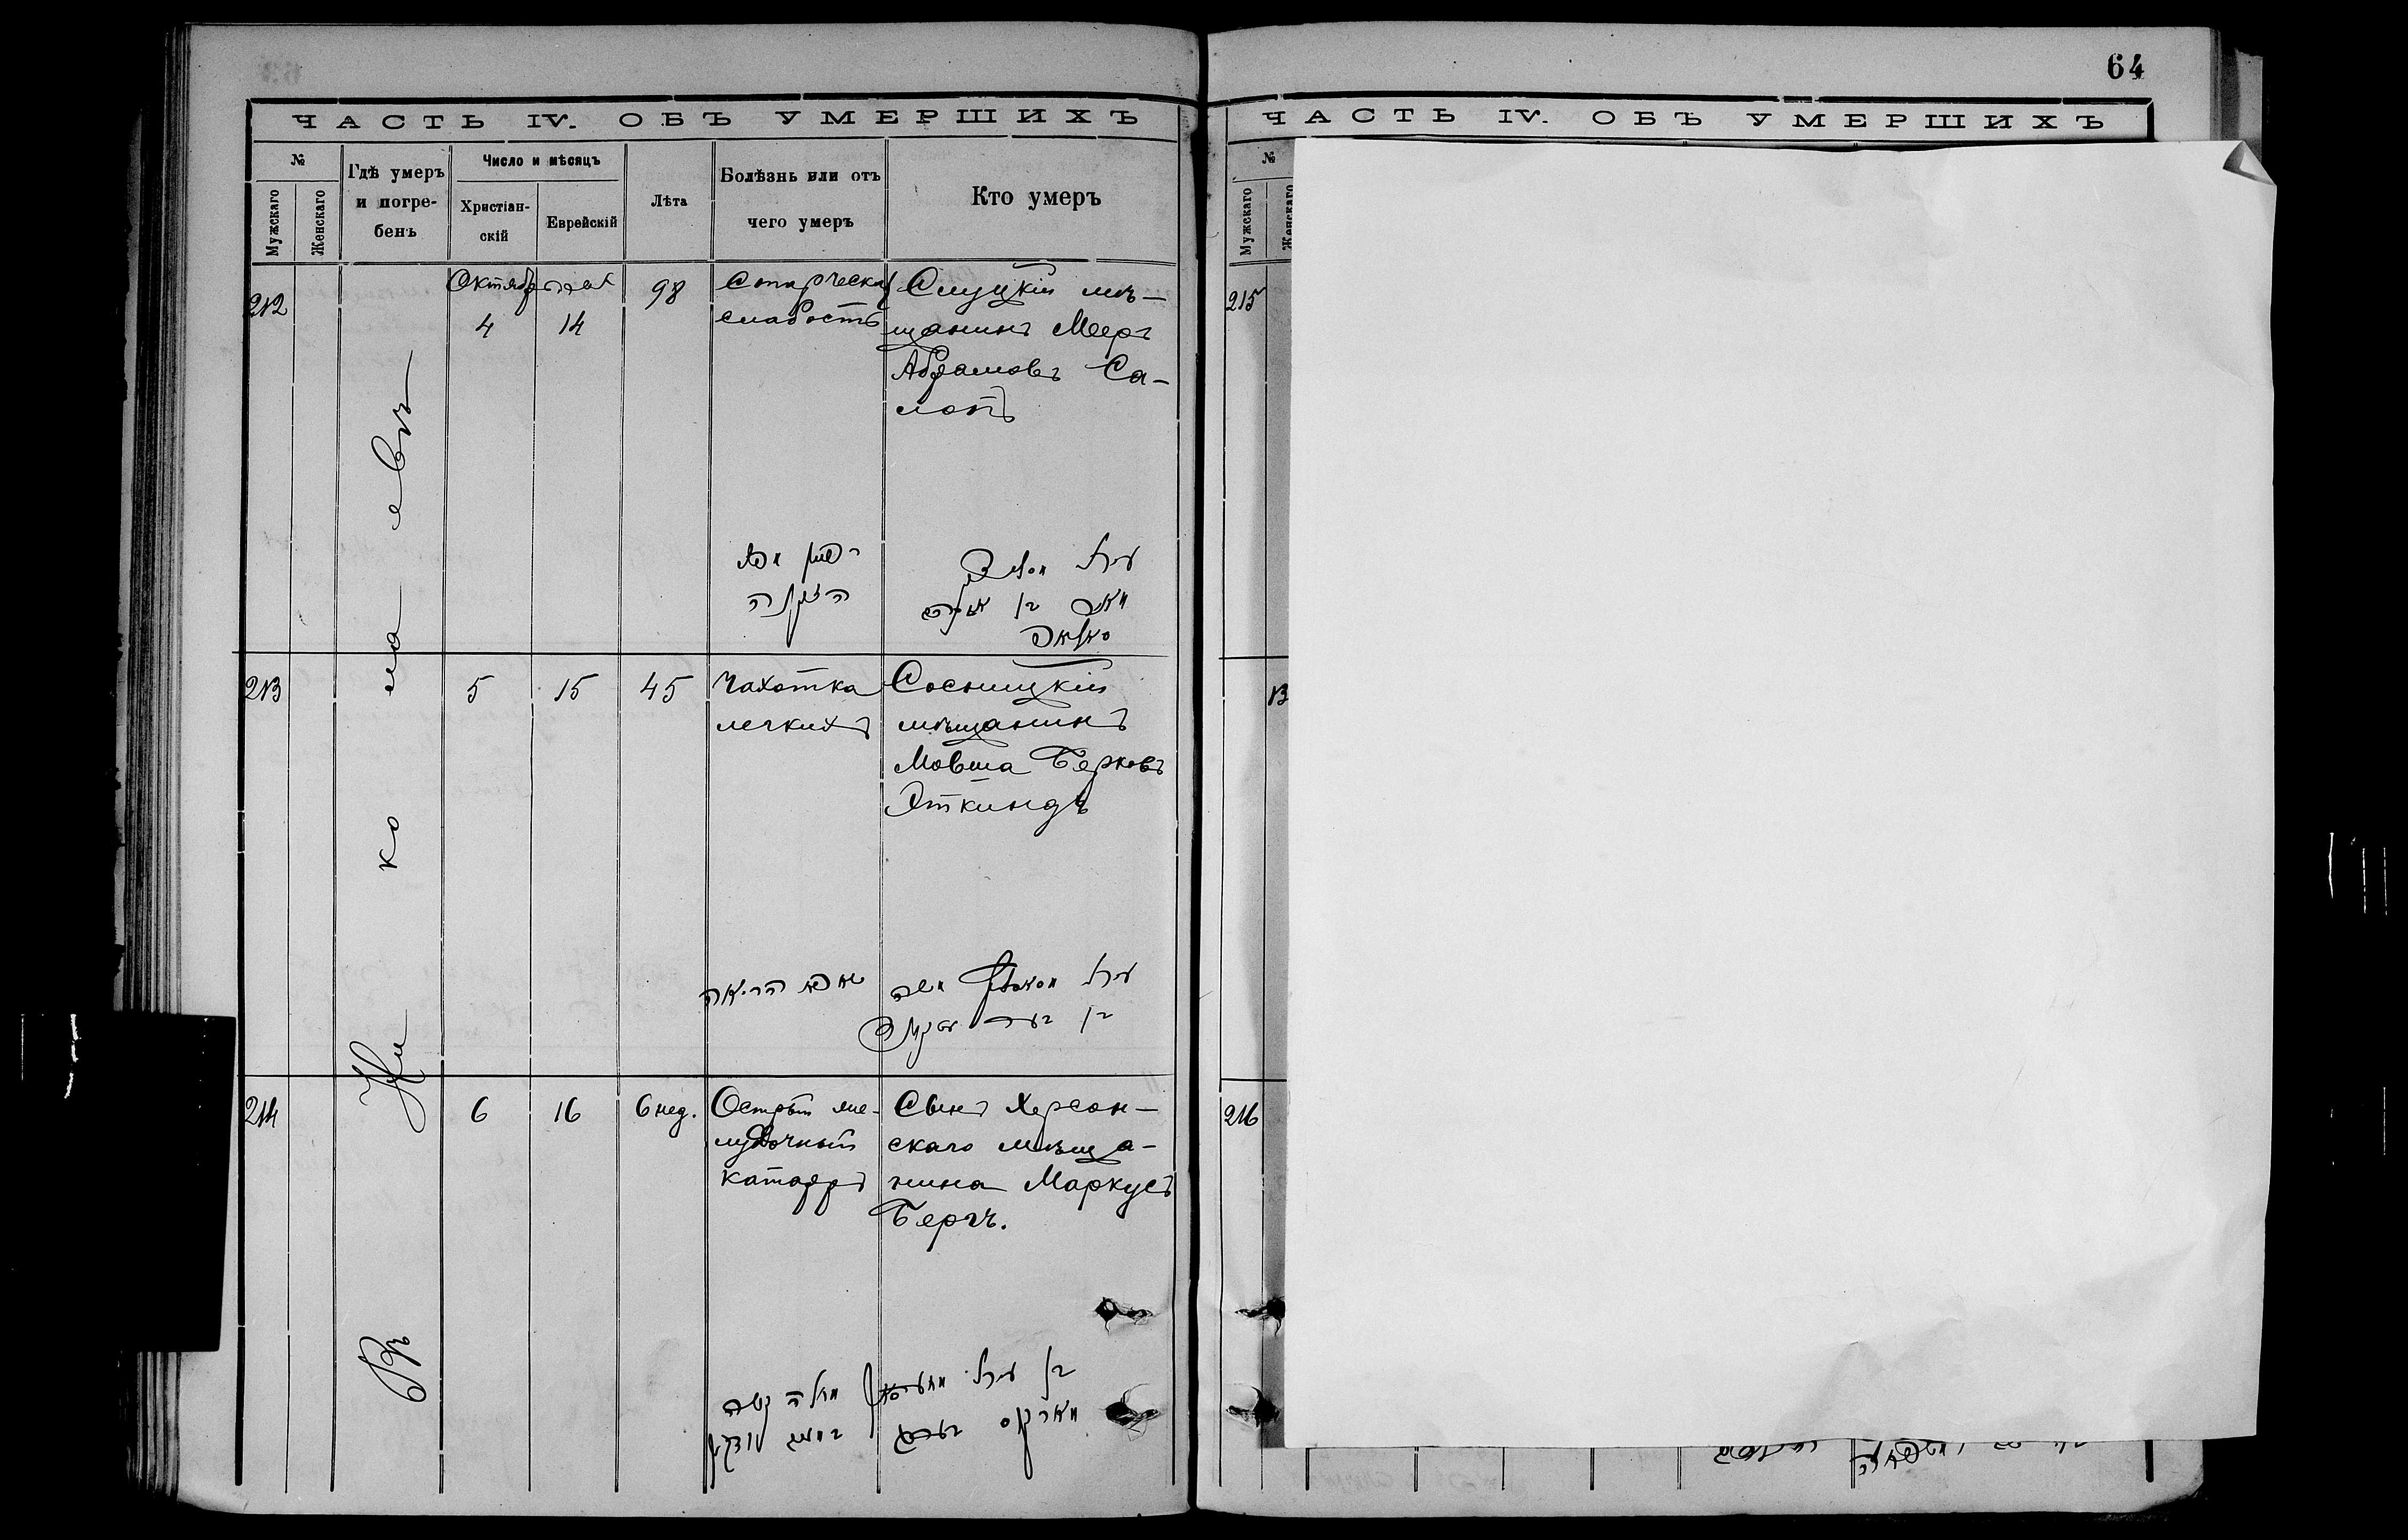 64
ЧАСТЬ IV. ОБЪ УМЕРШИХЪ
№
Мужскаго
Женскаго
Гдѣ умеръ
и погре-
бенъ
Число и мѣсяцъ
Христіан-
скій
Еврейскій
Лѣта
Болѣзнь или отъ
чего умеръ
Кто умеръ
Въ Николаевѣ
212
Октября
4
14
98
Старческая
слабость
Слуцкій мѣ-
щанинъ Мееръ
Абрамовъ Са-
лопъ
הזקנה
213
5
15
45
Чахотка
легкихъ
Сосницкій
мѣщанинъ
Мовша Берковъ
Эткиндъ
הריאה
משה
214
6
16
6 нед.
Острый же-
лудочный
катарръ
Сынъ Херсон-
скаго мѣща-
нина Маркусъ
Бергъ.
בן
מארקוס בערג
ЧАСТЬ IV. ОБЪ УМЕРШИХЪ
№
Мужскаго
Женскаго
215
13
216